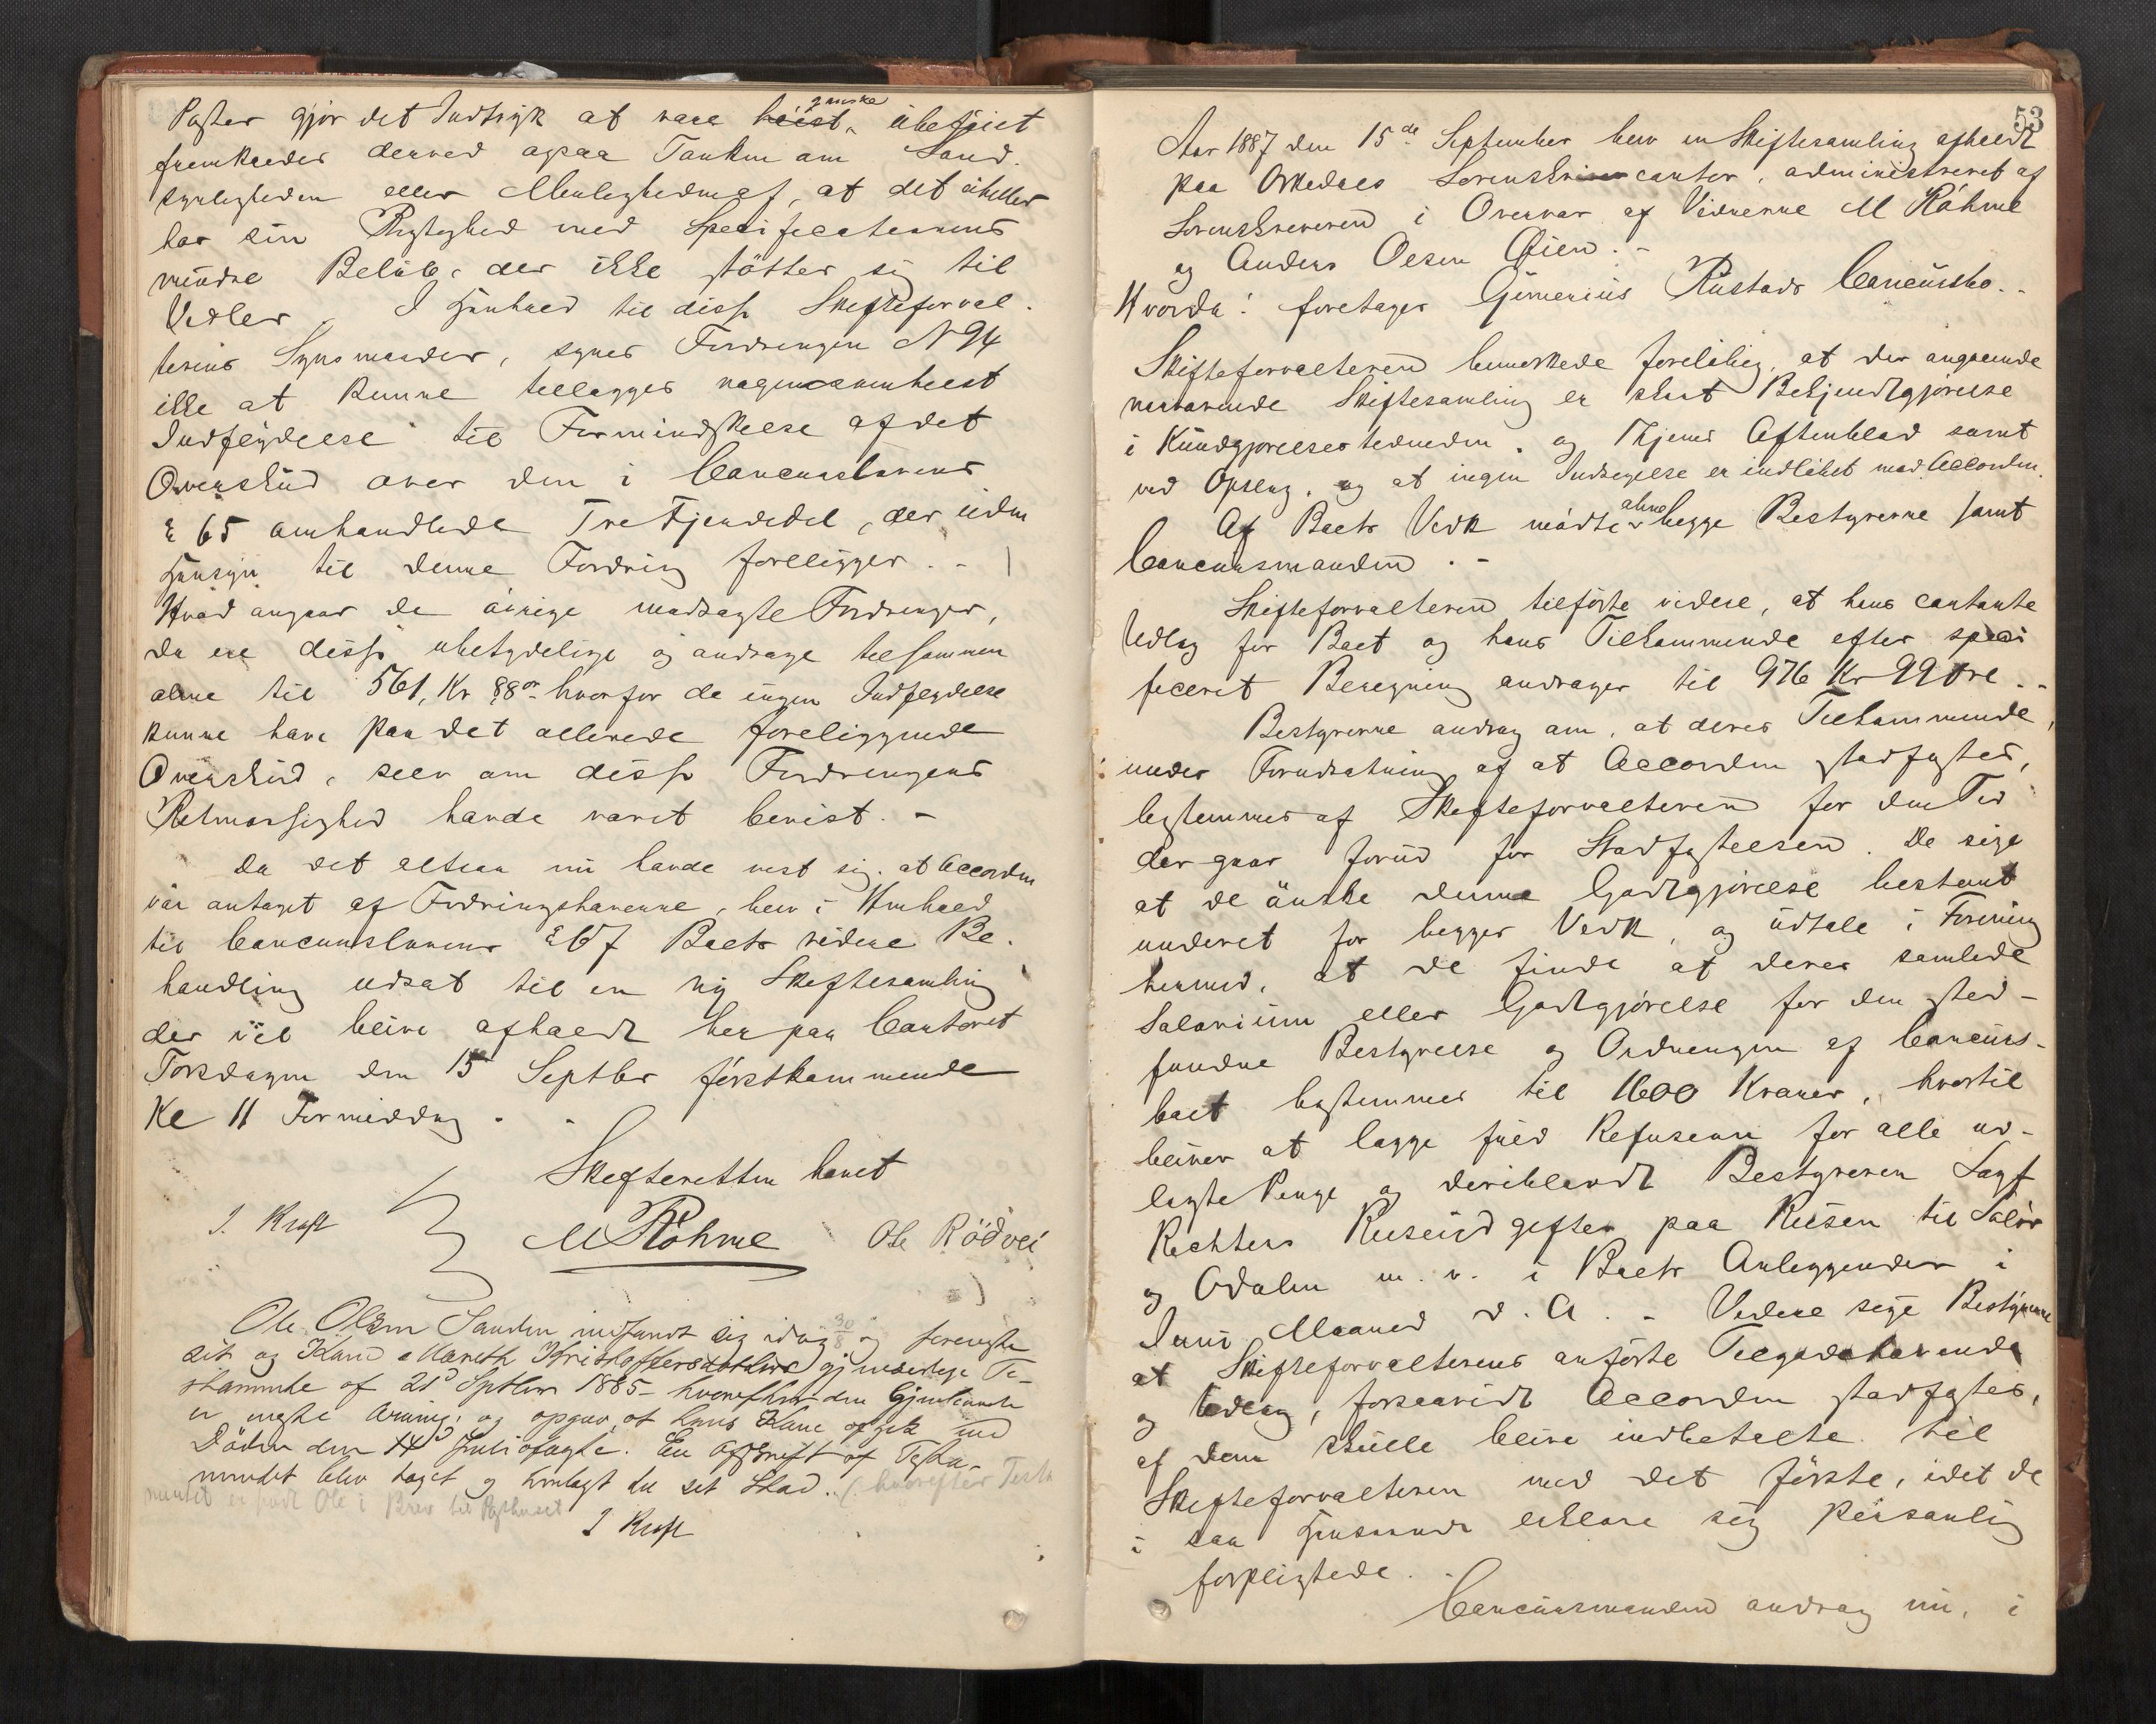 Poster gjör det Indtryk at være höist ganske übeföiet
fremkaldes derved ogsaa Tanken om Sand-
synligheden eller Muligheden af, at det üheller
har sin Rigtighed med Specificationens
mindre Belöb, der ikke stötter sig til
Vexler. I Henhold til disse Skifteforval-
terens Synsmaader, synes Fordringen N 94
ikke at kunne tillægges nogensomhelst
Indflydelse til Formindskelse af det
Overskud over den i Concurslovens
§ 65 omhandlede Tre Fjerdedel, der uden
Hensyn til denne Fordring foreligger. -
Hvad angaar de övrige modsagte Fordringer,
da ere disse ubetydelige og andrage tilsammen
alene til 561, Kr 88 ör hvorfor de ingen Indflydelse
kunne have paa det allerede foreliggende
Overskud, selv om disse Fordringens
Retmæssighed havde været bevist. -
Da det altsaa nu havde vist sig, at Accorden
var antaget af Fordringshaverne, blev i Henhold
til Concurslovens § 67 Boets videre Be-
handling udsat til en ny Skiftesamling
der vil blive afholdt her paa Contoret
Torsdagen den 15 Septbr förstkommende
Kl 11 Formiddag. -
Skifteretten hævet
I. Kraft M Röhme Ole Rödvei
Ole Olsen Sanden indfandt sig idag 30/8 og foreviste
sit og Kone Mareth Kristoffersdatters gjensidige Te-
stamente af 21 Septbr 1885 - hvorefter den Gjenlevende
er eneste Arving, og opgav, at hans Kone afgik ved
Döden den 14 Juli sidste. En Afskrift af Testa-
mentet blev taget og henlagt til sit Sted. (hvorefter Testa
mentet er sendt Ole i Brev til Posthuset
I Kraft
53
Aar 1887 den 15de September blev en Skiftesamling afholdt
paa Orkedals Sorenskrivercontor, administreret af
Sorenskriveren i Overvær af Vidnerne M Röhme
og Anders Olsen Öien. -
Hvorda: foretages Gunerius Rustads Concursbo. -
Skifteforvalteren bemærkede foreløbig, at der angaaende
nærværende Skiftesamling er skeet Bekjendtgjörelse
i Kundgjörelsestidenden, og Thjems Aftenblad samt
ved Opslag, og at ingen Indsigelse er indlöbet mod Accorden.
Af Boets Vedk mödte alene begge Bestyrerne samt
Concursmanden. -
Skifteforvalteren tilförte videre, at hans contante
Udlæg for Boet og hans Tilkommende efter speci
ficeret Beregning andrager til 976 Kr 99 Öre. -
Bestyrerne androg om, at deres Tilkommende,
under Forudsætning af at Accorden stadfæstes,
bestemmes af Skifteforvalteren for den Tid
der gaar forud for Stadfæstelsen. De sige
at de önske denne Godtgjörelse bestemt
underet for begges Vedk, og udtale i Forening
hermed, at de finde at deres samlede
Salarium eller Godtgjörelse for den sted-
fundne Bestyrelse og Ordningen af Concurs-
boet bestemmes til 1600 Kroner, hvortil
bliver at lægge fuld Refusion for alle ud-
lagte Penge og deriblandt Bestyreren Sagf
Richters Reiseudgifter paa Reisen til Solör
og Odalen m. v. i Boets Anliggender i
Juni Maaned d. A. - Videre sige Bestyrerne
at Skifteforvalterens anförte Tilgodehavende
og Udlæg, forsaavidt Accorden stadfæstes,
af dem skulle blive indbetalte til
Skifteforvalteren med det förste, idet de
i saa Henseende erklære sig personlig
forpligtede. -
Concursmanden androg nu, i